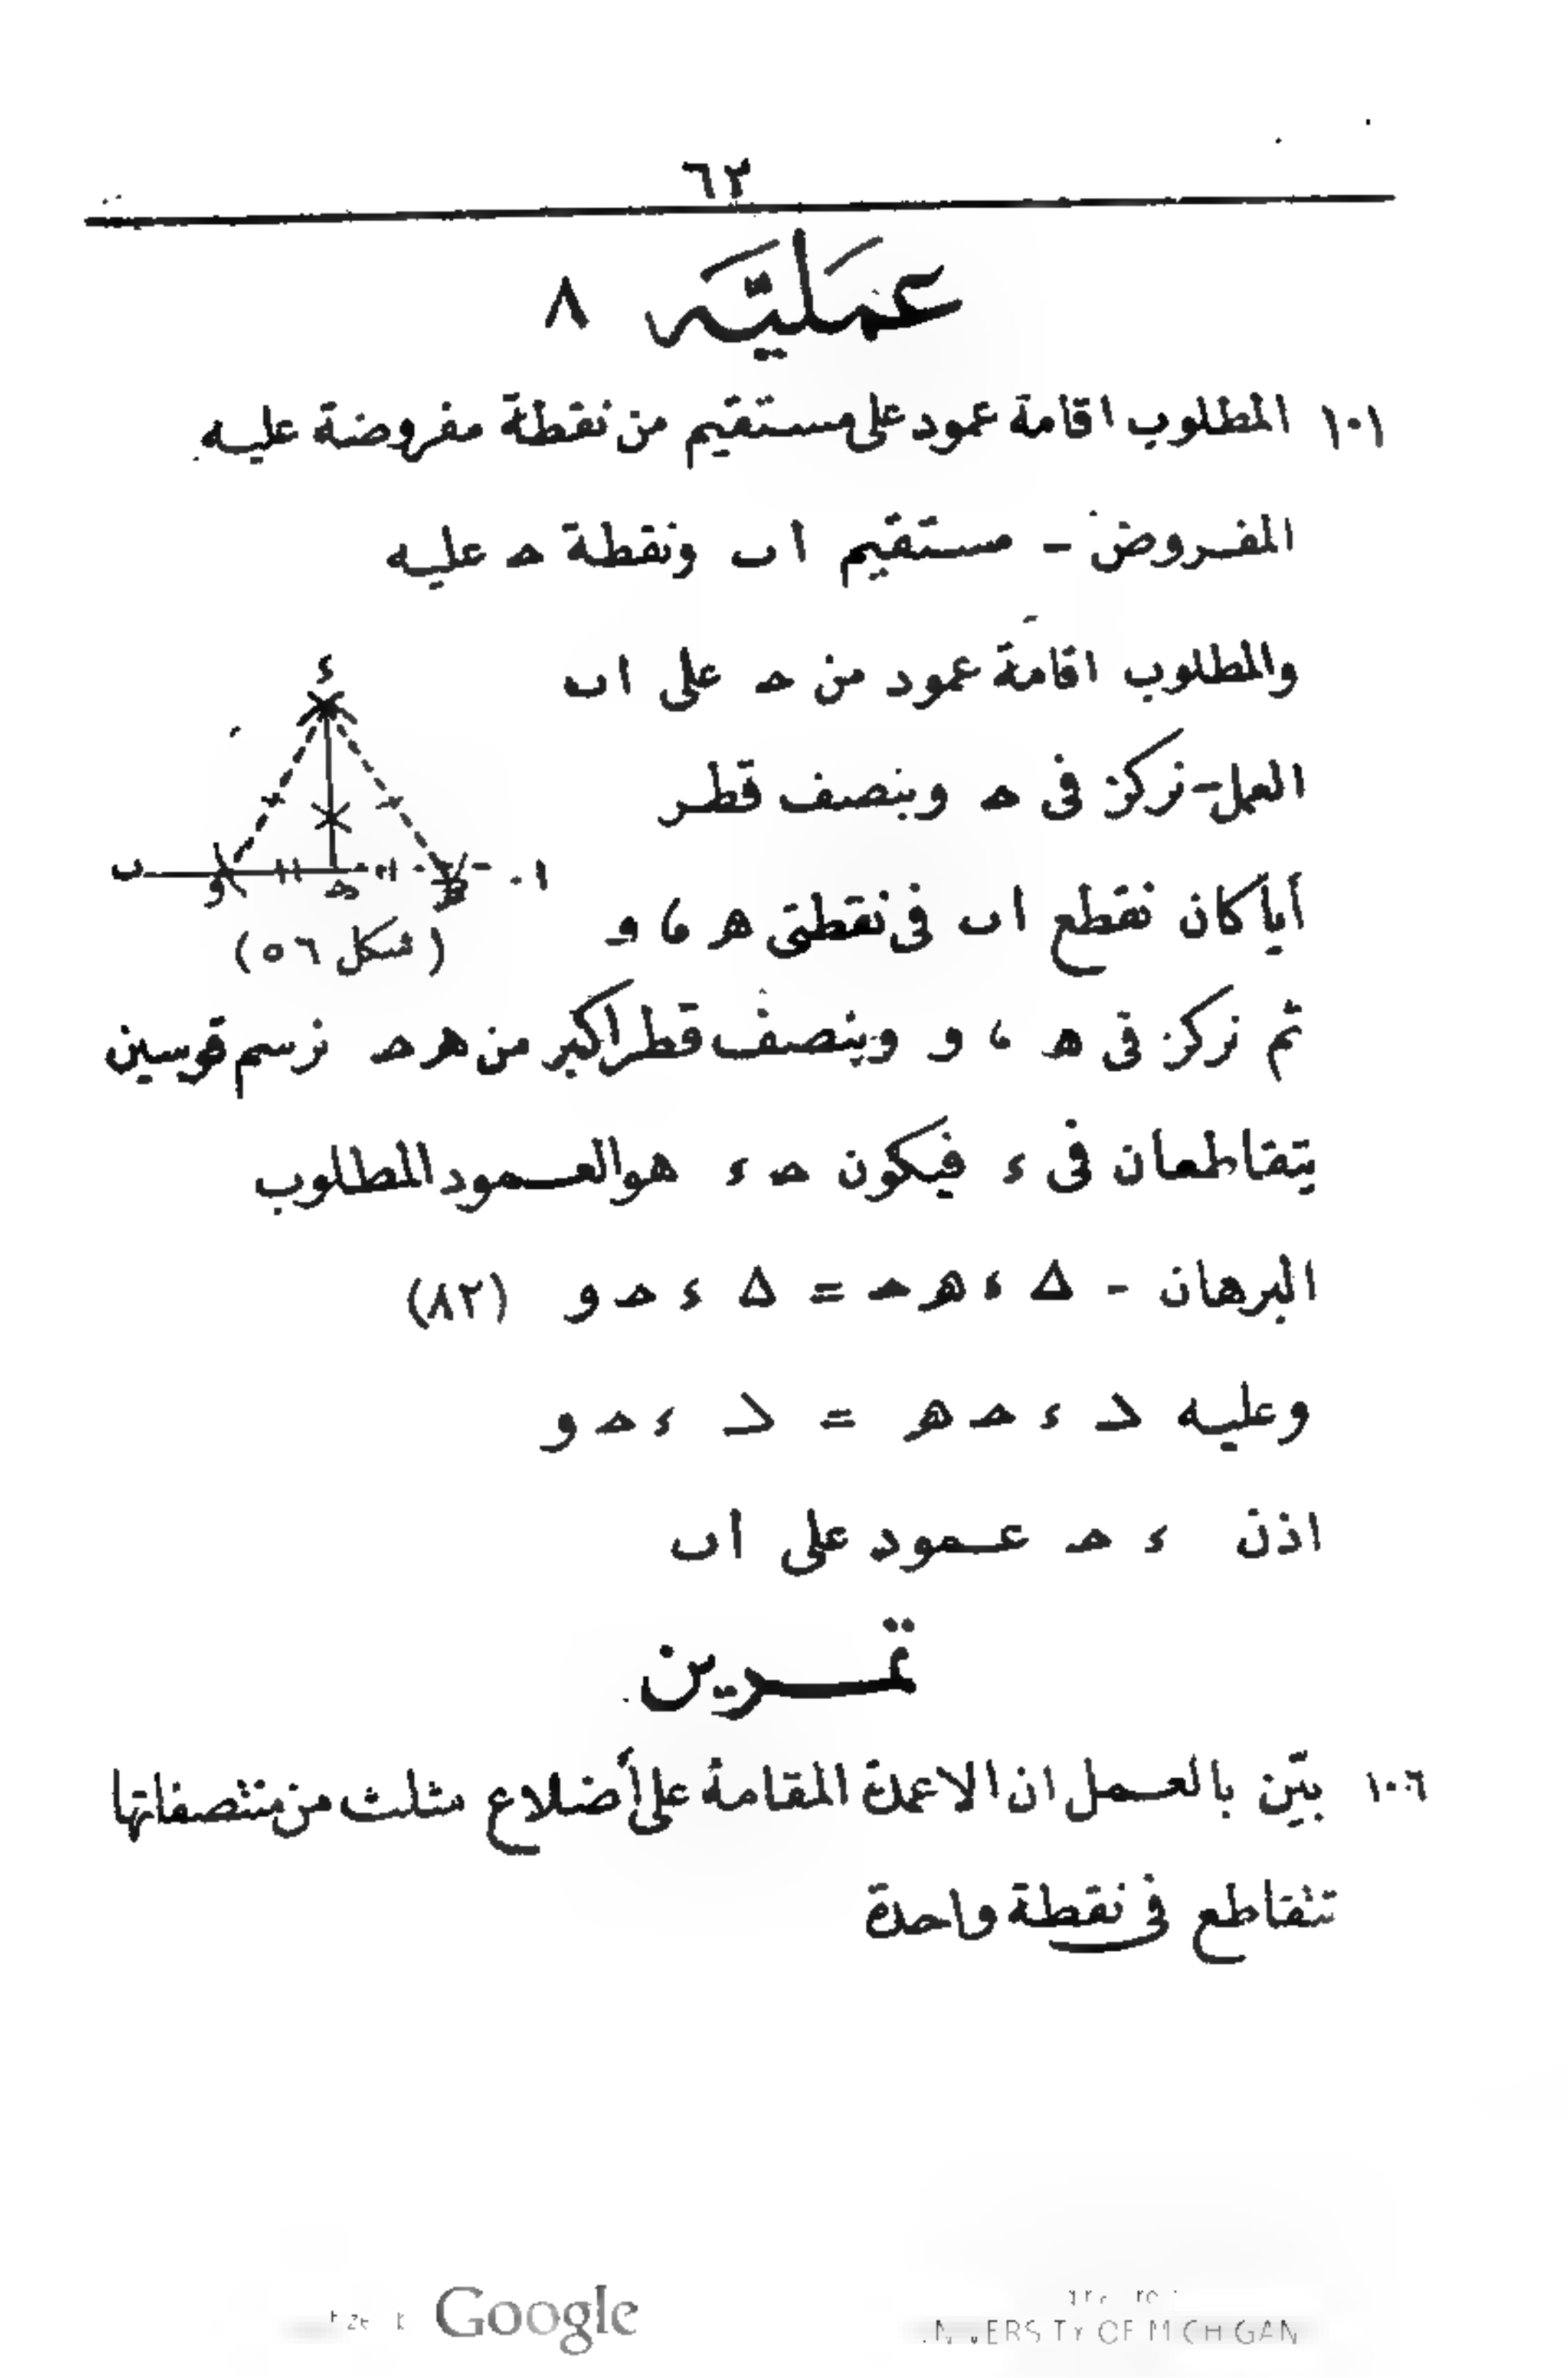 ٦٣
عمَليَّه ٨
١٠١ المطلوب اقامة عمود على مستقيم من نقطة مفروضة عليه
المفروض - مستقيم اب ونقطة حـ عليه
والمطلوب اقامة عمود من حـ على اب
العمل - نركز فى حـ وبنصف قطر
أيا كان نقطع اب فى نقطتى هـ ، و
ء
ب و حـ هـ ا
(شكل ٥٦)
ثم نركز فى هـ ، و وبنصف قطر اكبر من هـ حـ نرسم قوسين
يتقاطعان فى ء فيكون حـ ء هو العمود المطلوب
البرهان - △ ء هـ حـ = △ ء حـ و (٨٢)
وعليه د ء حـ هـ = د ء حـ و
اذن ء حـ عمود على اب
تمرين
١٠٦ بيّن بالعمل ان الاعمدة المقامة على أضلاع مثلث من منتصفاتها
تتقاطع فى نقطة واحدة
Google
UNIVERSITY OF MICHIGAN